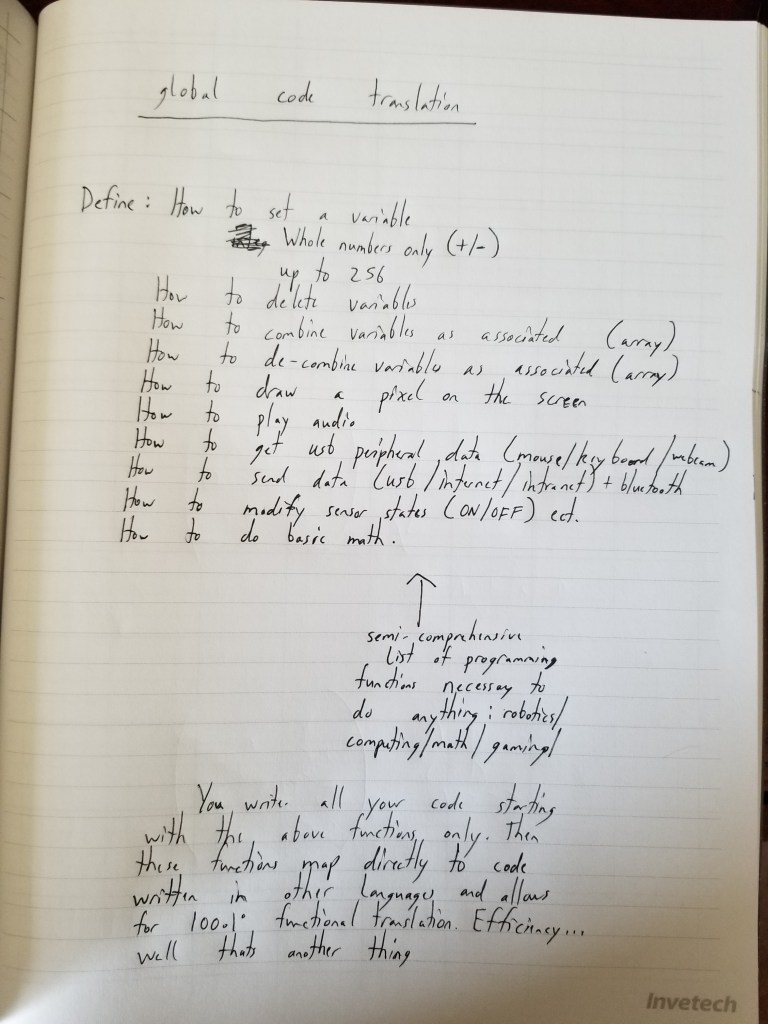 global code translation
Define: How to set a variable
Whole numbers only (+/-)
up to 256
How to delete variables
How to combine variables as associated (array)
How to de-combine variables as associated (array)
How to draw a pixel on the screen
How to play audio
How to get usb peripheral data (mouse/keyboard/webcam)
How to send data (usb/internet/intranet) + bluetooth
How to modify sensor states (ON/OFF) ect.
How to do basic math.
semi-comprehensive
list of programming
functions necessary to
do anything: robotics/
computing/math/gaming/
You write all your code starting
with the above functions only. Then
these functions map directly to code
written in other languages and allows
for 100% functional translation. Efficiency...
well thats another thing
Invetech